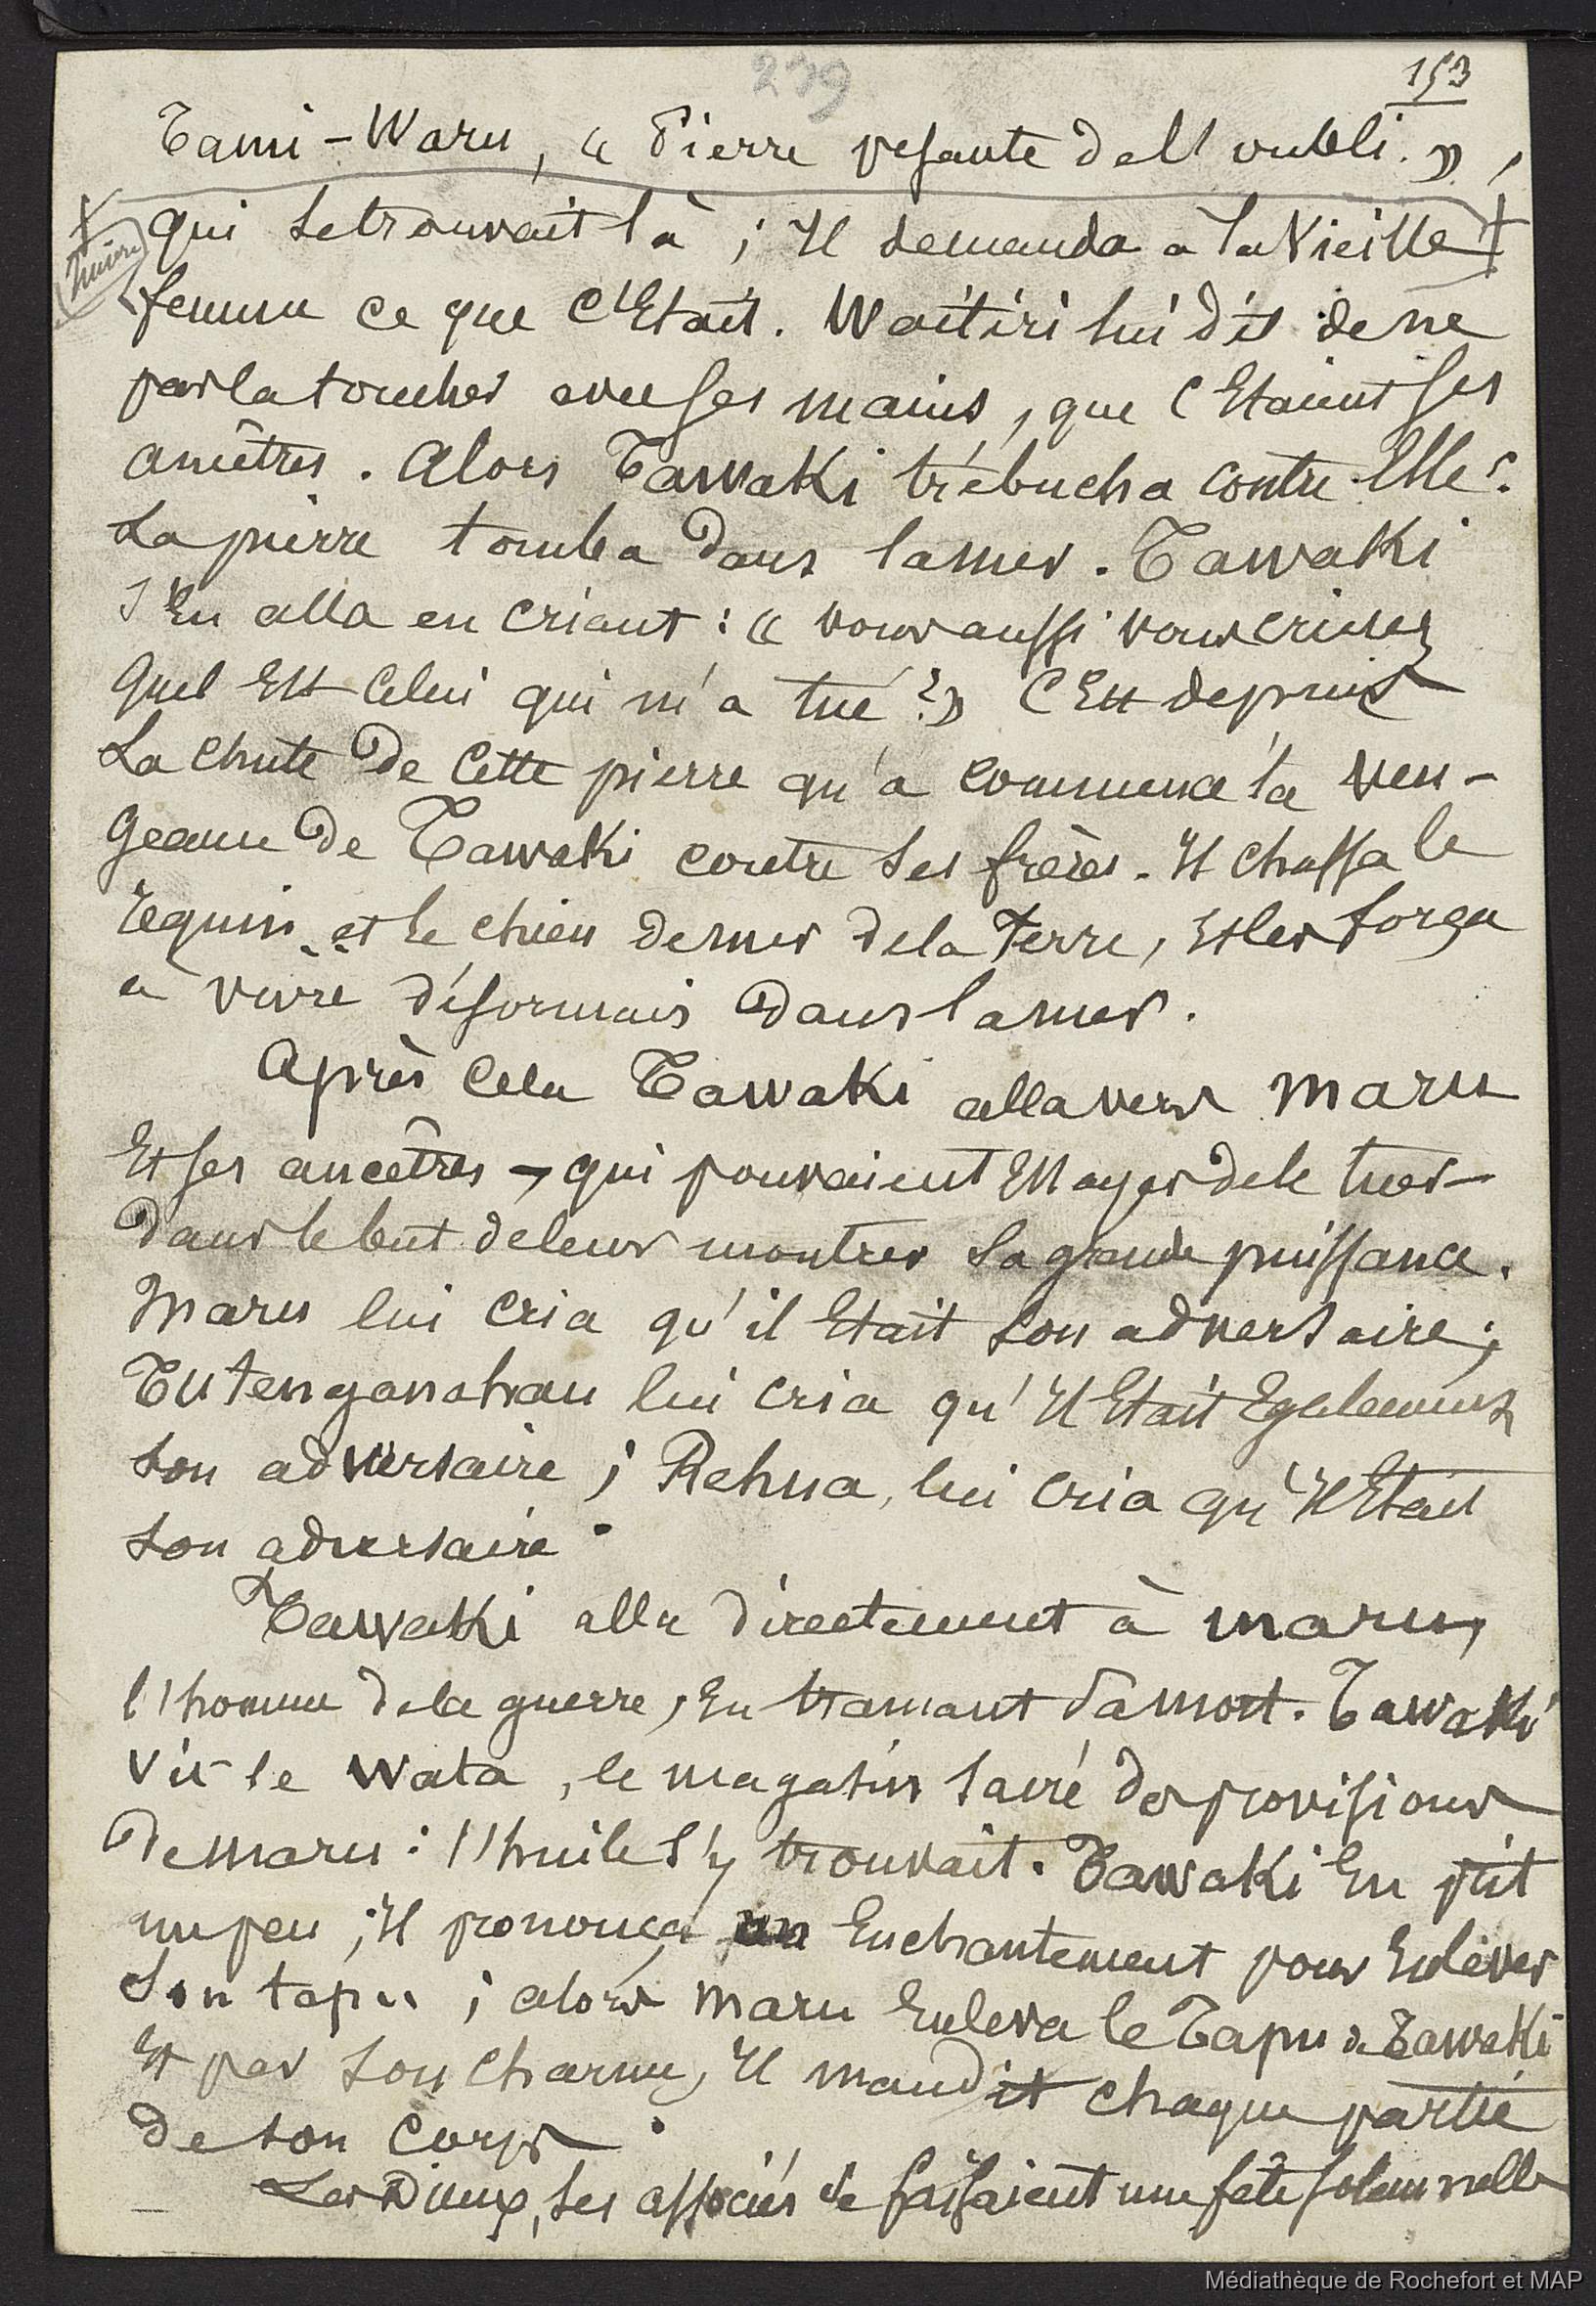 239
153
Tami-Waru, « Pierre pesante de l'oubli. »,
qui se trouvait là ; Il demanda à la Vieille
femme ce que c'Etait. Waitiri lui dit de ne
pas la toucher avec ses mains, que c'Etaient ses
ancêtres. Alors Tawaki trébucha contre Elle.
La pierre tomba dans la mer. Tawaki
s'En alla en criant : « vous aussi vous criez
Quel Est Celui qui m'a tué ? » C'Est depuis
La chute de Cette pierre qu'a commencé la ven-
geance de Tawaki contre ses frères. Il chassa le
requin et le chien de mer de la Terre, Et les força
à vivre désormais dans la mer.
Après Cela Tawaki alla vers Maru
Et ses ancêtres – qui pouvaient Essayer de le tuer –
Dans le but de leur montrer sa grande puissance.
Maru lui cria qu'il Etait son adversaire ;
Tutenganahau lui cria qu'Il Etait Egalement
son adversaire ; Rehua, lui cria qu'Il Etait
son adversaire.
Tawaki alla directement à Maru,
l'homme de la guerre, En tramant sa mort. Tawaki
vit le Wata, le magasin sacré des provisions
de Maru : l'huile s'y trouvait. Tawaki En prit
un peu ; Il prononça un Enchantement pour Enlever
Son tapu ; alors Maru Enleva le Tapu de Tawaki
Et par son charme, Il maudit chaque partie
de son Corps.
Les Dieux, ses associés se faisaient une fête solennelle
Médiathèque de Rochefort et MAP